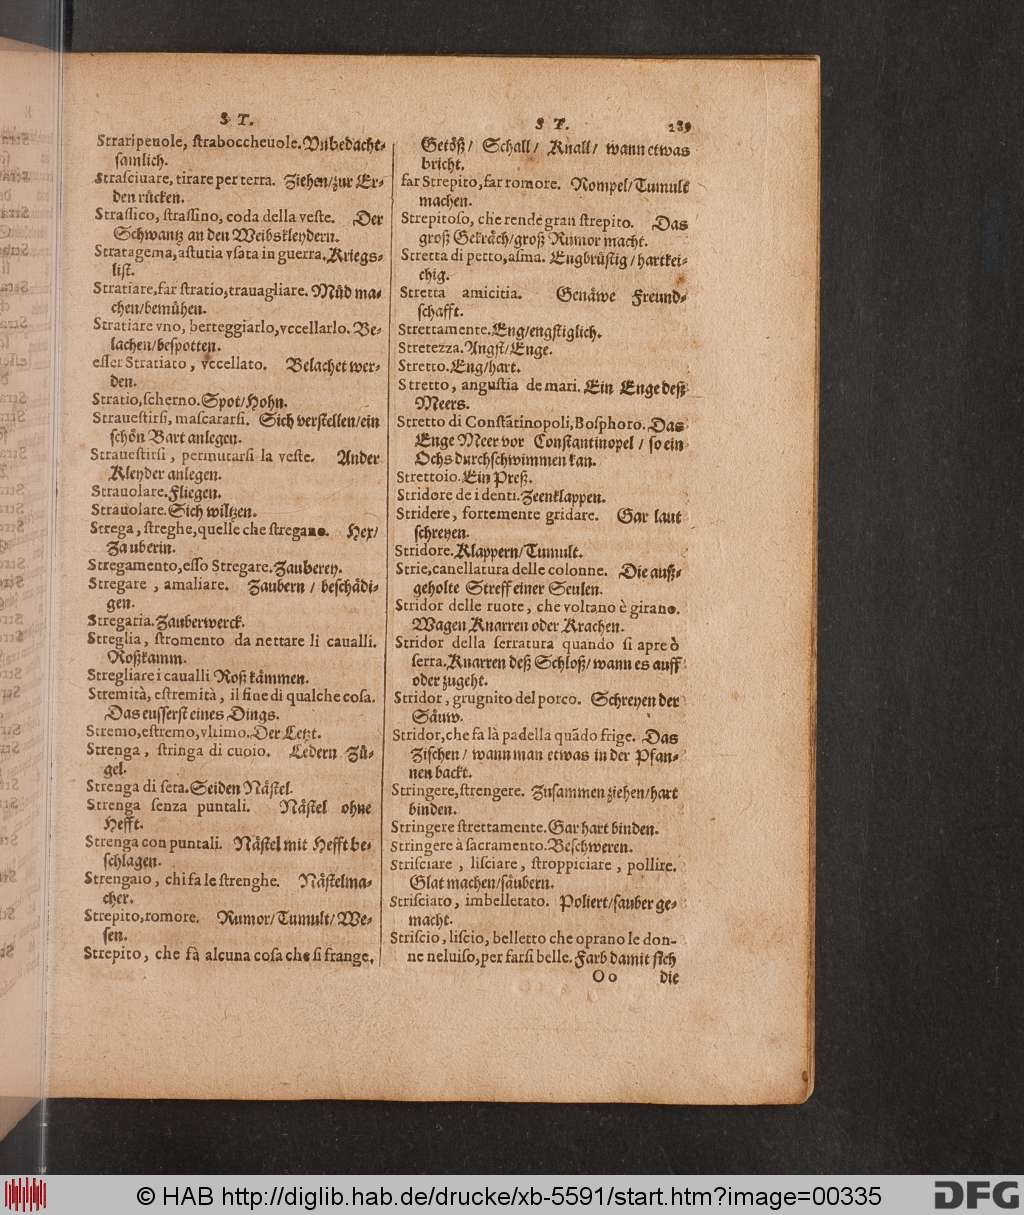 S T.
Straripeuole, straboccheuole. Vnbedacht-
samlich.
Strasciuare, tirare per terra. Ziehen/zur Er-
den rücken.
Strassico, strassino, coda della veste. Der
Schwantz an den Weibskleydern.
Stratagema, astutia vsata in guerra. Kriegs-
list.
Stratiare, far stratio, trauagliare. Müd ma-
chen/bemühen.
Stratiare vno, berteggiarlo, vccellarlo. Be-
lachen/bespotten.
esser Stratiato, vccellato. Belachet wer-
den.
Stratio, scherno. Spot/Hohn.
Strauestirsi, mascararsi. Sich verstellen/ein
schön Bart anlegen.
Strauestirsi, permutarsi la veste. Ander
Kleyder anlegen.
Strauolare. Fliegen.
Strauolare. Sich wiltzen.
Strega, streghe, quelle che stregano. Hex/
Zauberin.
Stregamento, esso Stregare. Zauberey.
Stregare, amaliare. Zaubern / beschädi-
gen.
Stregaria. Zauberwerck.
Streglia, stromento da nettare li caualli.
Roßkamm.
Stregliare i caualli Roß kämmen.
Stremità, estremità, il fine di qualche cosa.
Das eusserst eines Dings.
Stremo, estremo, vltimo. Der Letzt.
Strenga, stringa di cuoio. Ledern Zü-
gel.
Strenga di seta. Seiden Nästel.
Strenga senza puntali. Nästel ohne
Hefft.
Strenga con puntali. Nästel mit Hefft be-
schlagen.
Strengaio, chi fa le strenghe. Nästelma-
cher.
Strepito, romore. Rumor/Tumult/We-
sen.
Strepito, che fà alcuna cosa che si frange,
S T. 289
Getöß/ Schall/ Knall/ wann etwas
bricht.
far Strepito, far romore. Rompel/Tumult
machen.
Strepitoso, che rende gran strepito. Das
groß Gekräch/groß Rumor macht.
Stretta di petto, asma. Engbrüstig/hartkei-
chig.
Stretta amicitia. Genäwe Freund-
schafft.
Strettamente. Eng/engstiglich.
Stretezza. Angst/Enge.
Stretto. Eng/hart.
Stretto, angustia de mari. Ein Enge deß
Meers.
Stretto di Constãtinopoli, Bosphoro. Das
Enge Meer vor Constantinopel / so ein
Ochs durchschwimmen kan.
Strettoio. Ein Preß.
Stridore de i denti. Zeenklappen.
Stridere, fortemente gridare. Gar laut
schreyen.
Stridore. Klappern/Tumult.
Strie, canellatura delle colonne. Die auß-
geholte Streff einer Seulen.
Stridor delle ruote, che voltano è girano.
Wagen Knarren oder Krachen.
Stridor della serratura quando si apre ò
serra. Knarren deß Schloß/wann es auff
oder zugeht.
Stridor, grugnito del porco. Schreyen der
Säuw.
Stridor, che fa là padella quãdo frige. Das
Zischen/ wann man etwas in der Pfan-
nen backt.
Stringere, strengere. Zusammen ziehen/hart
binden.
Stringere strettamente. Gar hart binden.
Stringere à sacramento. Beschweren.
Strisciare, lisciare, stroppiciare, pollire.
Glat machen/säubern.
Strisciato, imbelletato. Poliert/sauber ge-
macht.
Striscio, liscio, belletto che oprano le don-
ne nel uiso, per farsi belle. Farb damit sich
O o die
© HAB http://diglib.hab.de/drucke/xb-5591/start.htm?image=00335
DFG